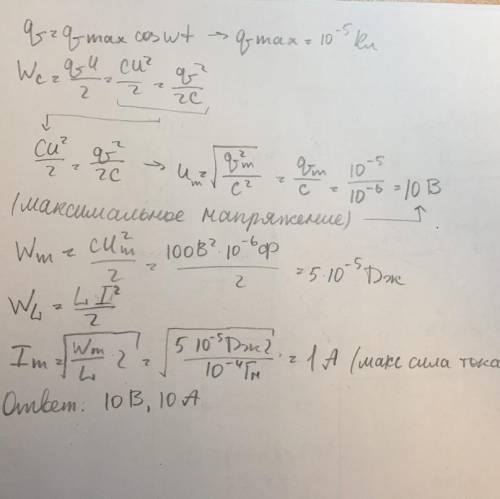 q = q max cos wt → q max = 10⁻⁵ Кл
Wc = qU/2 = CU²/2 = q²/2C
CU²/2 = q²/2C → Um = √(qm²/C²) = qm/C = 10⁻⁵/10⁻⁶ = 10 В
(максимальное напряжение)
Wm = CUm²/2 = 100В²·10⁻⁶Ф/2 = 5·10⁻⁵ Дж
WL = LI²/2
Im = √(Wm/L 2) = √(5 10⁻⁵Дж2/10⁻⁴Гн) = 1 А (макс сила тока
Ответ: 10 В, 10 А